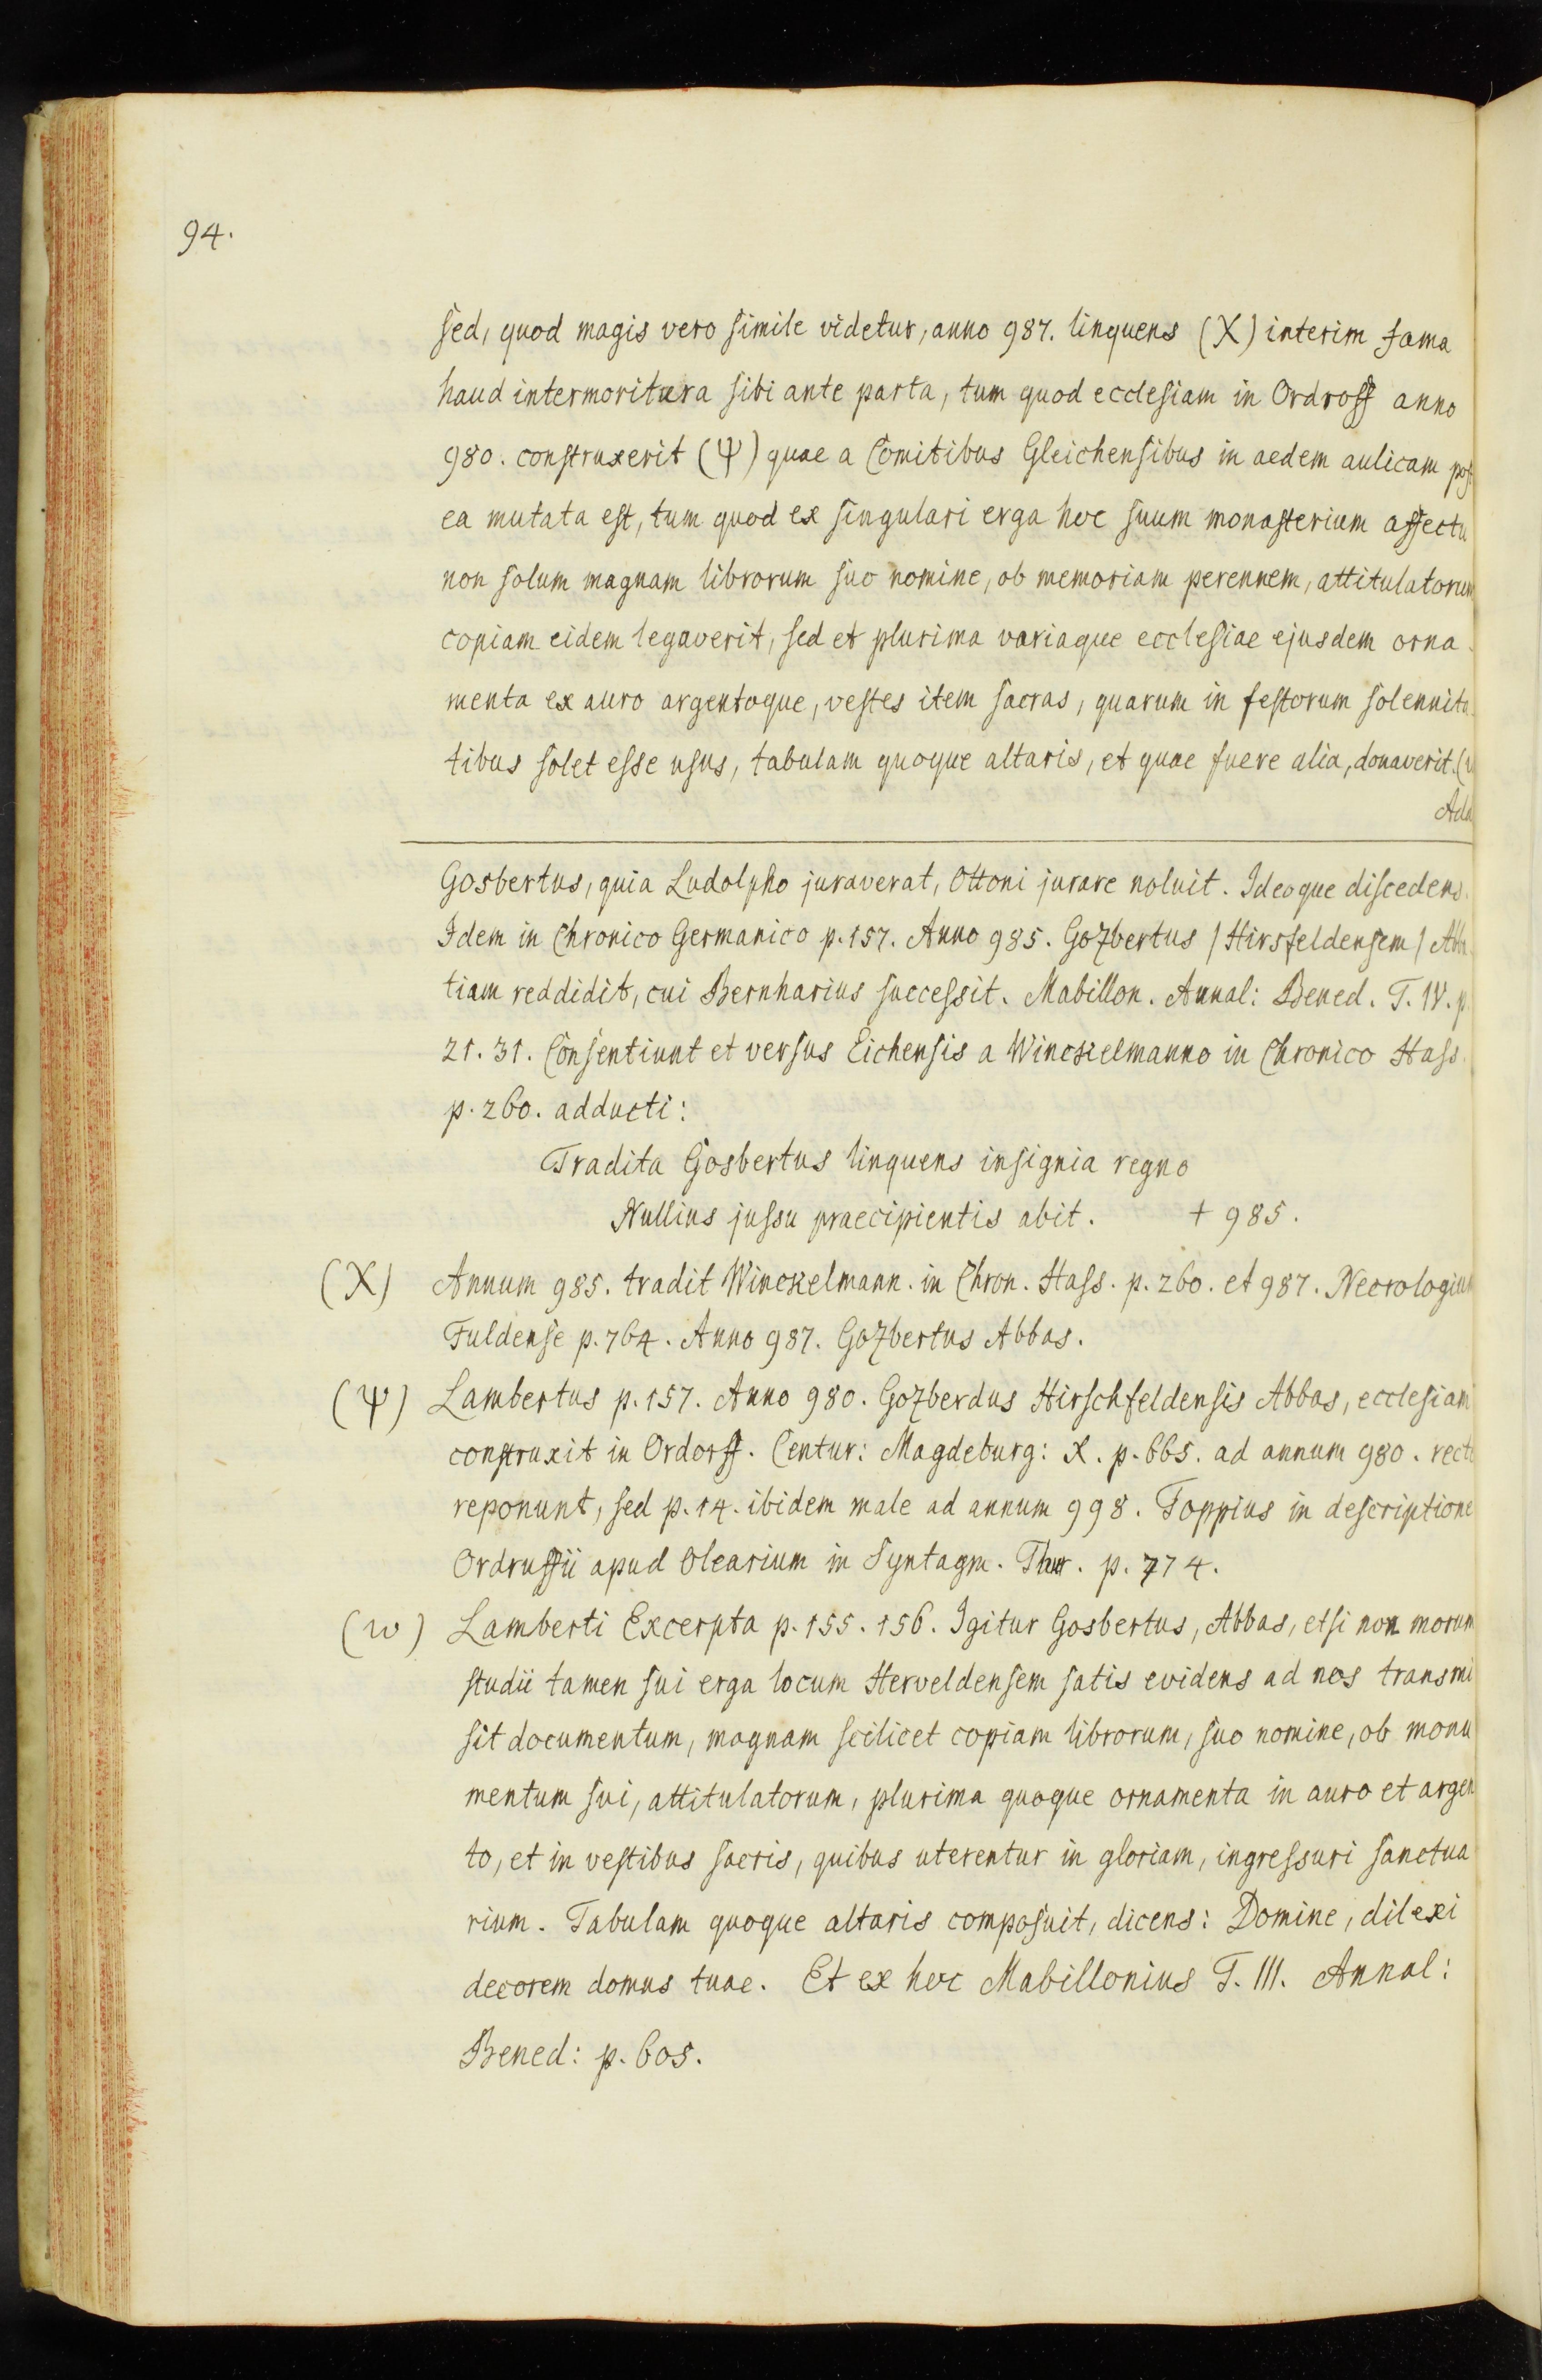 94.
sed, quod magis vero simile videtur, anno 987. linquens (X) interim fama
haud intermoritura sibi ante parta, tum quod ecclesiam in Ordroff anno
980. construxerit (Ψ) quae a Comitibus Gleichensibus in aedem aulicam post
ea mutata est, tum quod ex singulari erga hoc suum monasterium affectu
non solum magnam librorum suo nomine, ob memoriam perennem, attitulatorum
copiam eidem legaverit, sed et plurima variaque ecclesiae ejusdem orna-
menta ex auro argentoque, vestes item sacras, quarum in festorum solennita-
tibus solet esse usus, tabulam quoque altaris, et quae fuere alia, donaverit. (
Ada
Gosbertus, quia Ludolpho juraverat, Ottoni jurare noluit. Ideoque discedens.
Idem in Chronico Germanico p. 157. Anno 985. Gozbertus / Hirsfeldensem / Abba
tiam reddidit, cui Bernharius successit. Mabillon. Annal: Bened. T. IV. p.
21. 31. Consentiunt et versus Eichensis a Winckelmanno in Chronico Hass.
p. 260. adducti:
Tradita Gosbertus linquens insignia regno
Nullius jussu praecipientis abit. † 985.
(X) Annum 985. tradit Winckelmann. in Chron. Hass. p. 260. et 987. Necrologium
Fuldense p. 764. Anno 987. Gozbertus Abbas.
(Ψ) Lambertus p. 157. Anno 980. Gozberdus Hirschfeldensis Abbas, ecclesiam
construxit in Ordorff. Centur: Magdeburg: X. p. 665. ad annum 980. recte
reponunt, sed p. 14. ibidem male ad annum 998. Toppius in descriptione
Ordruffii apud Olearium in Syntagm. Thur. p. 774.
(w) Lamberti Excerpta p. 155. 156. Igitur Gosbertus, Abbas, etsi non morum
studii tamen sui erga locum Herveldensem satis evidens ad nos transmi
sit documentum, magnam scilicet copiam librorum, suo nomine, ob monu
mentum sui, attitulatorum, plurima quoque ornamenta in auro et argen
to, et in vestibus sacris, quibus uterentur in gloriam, ingressuri sanctua
rium. Tabulam quoque altaris composuit, dicens: Domine, dilexi
decorem domus tuae. Et ex hoc Mabillonius T. III. Annal:
Bened: p. 605.